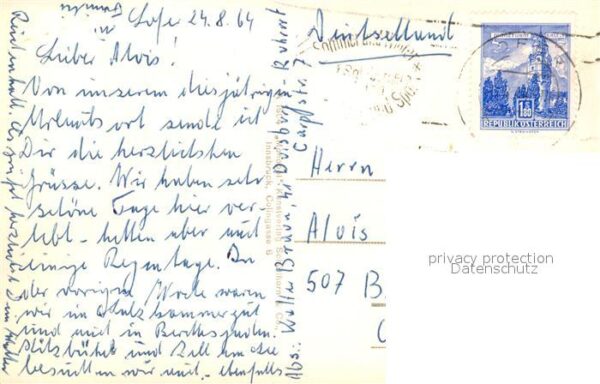 Lofer 24.8.64
Lieber Alois!
Von unserem diesjährigen
Urlaubsort sende ich
Dir die herzlichsten
Grüsse. Wir haben sehr
schöne Tage hier ver-
lebt - hatten aber auch
einige Regentage. In
der vorigen Woche waren
wir im Salzkammergut
und auch in Berchtesgaden.
Kitzbühel und Zell am See
besuchten wir auch - ebenfalls
Reichenhall. Es grüßt herzlichst Dein Walter
Abs.: Walter Braun, 41 Duisburg - Ruhrort
Innsbruck, Colingasse
Deutschland
Herrn
Alois
507 B
REPUBLIK ÖSTERREICH
privacy protection
Datenschutz